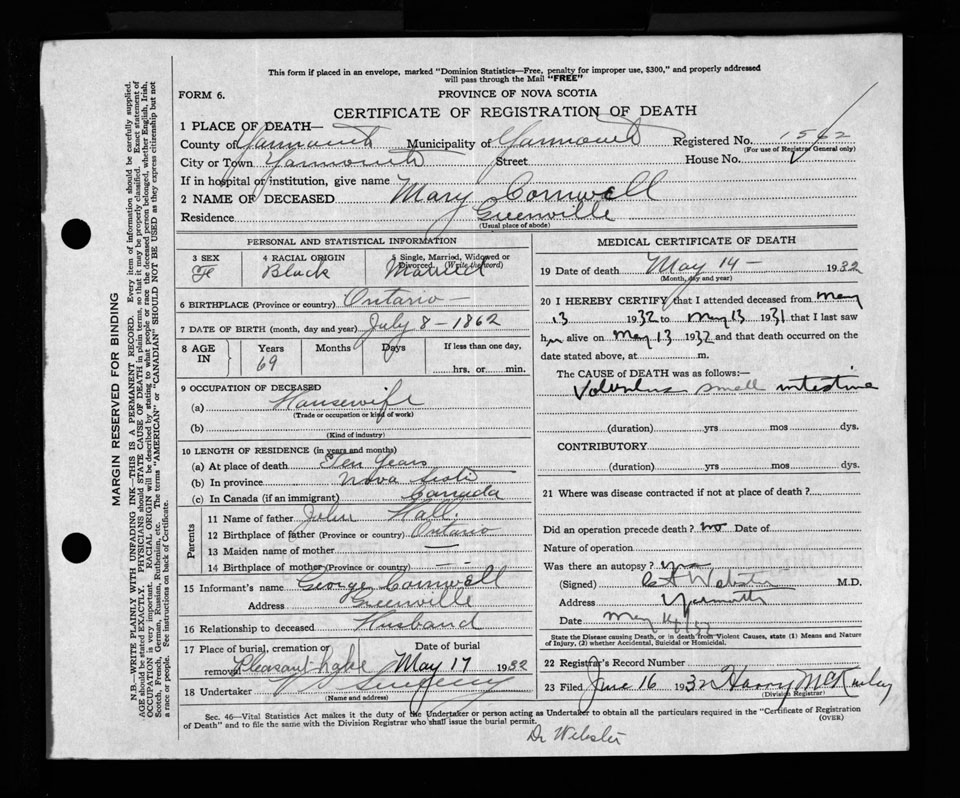 This form if placed in an envelope, marked "Dominion Statistics—Free, penalty for improper use, $300," and properly addressed
will pass through the Mail "FREE"
FORM 6.
PROVINCE OF NOVA SCOTIA
CERTIFICATE OF REGISTRATION OF DEATH
1 PLACE OF DEATH—
County of Yarmouth Municipality of Yarmouth Registered No. 1562
(For use of Registrar General only)
City or Town Yarmouth Street House No.
If in hospital or institution, give name
2 NAME OF DECEASED Mary Cornwell
Residence Greenville
(Usual place of abode)
PERSONAL AND STATISTICAL INFORMATION
3 SEX 4 RACIAL ORIGIN 5 Single, Married, Widowed or
Divorced (Write the word)
F Black Married
6 BIRTHPLACE (Province or country) Ontario —
7 DATE OF BIRTH (month, day and year) July 8 – 1862
8 AGE IN Years Months Days If less than one day,
69 hrs. or min.
9 OCCUPATION OF DECEASED
(a) Housewife
(Trade or occupation or kind of work)
(b)
(Kind of industry)
10 LENGTH OF RESIDENCE (in years and months)
(a) At place of death Ten Years
(b) In province Nova Scotia
(c) In Canada (if an immigrant) Canada
Parents
11 Name of father John Hall
12 Birthplace of father (Province or country) Ontario
13 Maiden name of mother —
14 Birthplace of mother (Province or country) —
15 Informant's name George Cornwell
Address Greenville
16 Relationship to deceased Husband
17 Place of burial, cremation or Date of burial
removal Pleasant Lake May 17 1932
18 Undertaker
(Name and address)
MEDICAL CERTIFICATE OF DEATH
19 Date of death May 14 – 1932
(Month, day and year)
20 I HEREBY CERTIFY that I attended deceased from May
13 1932 to May 13 1931 that I last saw
her alive on May 13 1932 and that death occurred on the
date stated above, at m.
The CAUSE OF DEATH was as follows:—
Volvulus small intestine
(duration) yrs mos dys.
CONTRIBUTORY
(duration) yrs mos dys.
21 Where was disease contracted if not at place of death?
Did an operation precede death? no Date of
Nature of operation
Was there an autopsy?
(Signed) Webster M.D.
Address Yarmouth
Date May 14/32
State the Disease causing Death, or in death from Violent Causes, state (1) Means and Nature
of Injury, (2) whether Accidental, Suicidal or Homicidal.
22 Registrar's Record Number
23 Filed June 16 1932 Harry McKinley
(Division Registrar)
Sec. 46—Vital Statistics Act makes it the duty of the Undertaker or person acting as Undertaker to obtain all the particulars required in the "Certificate of Registration
of Death" and to file the same with the Division Registrar who shall issue the burial permit. (OVER)
Dr Webster
MARGIN RESERVED FOR BINDING
N.B.—WRITE PLAINLY WITH UNFADING INK—THIS IS A PERMANENT RECORD. Every item of information should be carefully supplied.
AGE should be stated EXACTLY. PHYSICIANS should STATE CAUSE OF DEATH in plain terms, so that it may be properly classified. Exact statement of
OCCUPATION is very important. RACIAL ORIGIN will be described by stating to what people or race the deceased person belonged, whether English, Irish,
Scotch, French, German, Russian, Ruthenian, etc. The terms "AMERICAN" or "CANADIAN" SHOULD NOT BE USED as they express citizenship but not
a race or people. See instructions on back of Certificate.